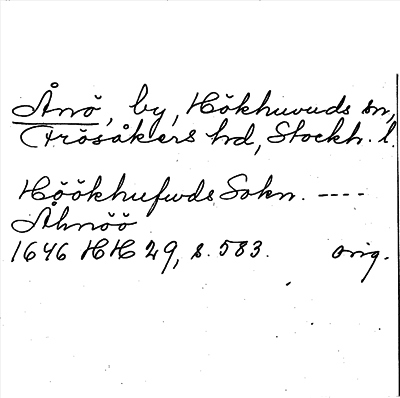 Ånö, by, Hökhuvuds sn,
Frösåkers hd, Stockh. l.
Höökhufwds Sokn. ----
Åhnöö
1646 HH 29, s. 583. orig.